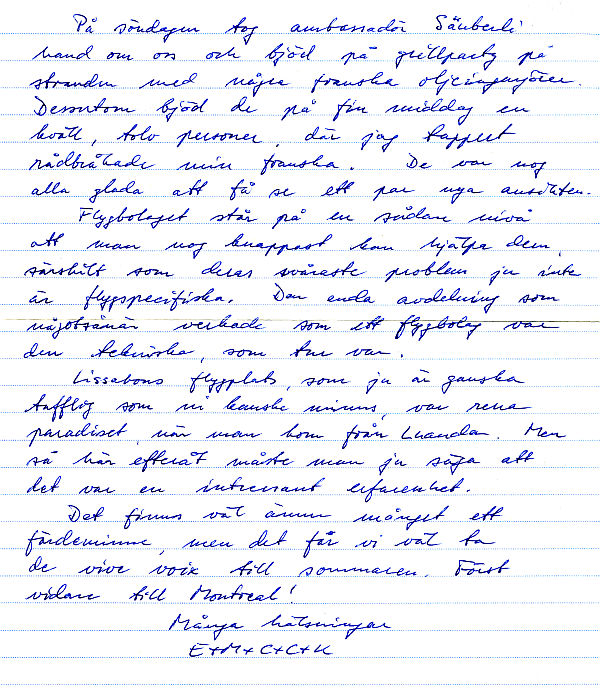 På söndagen tog ambassadör Säuberli
hand om oss och bjöd på grillparty på
stranden med några franska oljeingenjörer.
Dessutom bjöd de på fin middag en
kväll, tolv personer, där jag tappert
rådbråkade min franska. De var nog
alla glada att få se ett par nya ansikten.
Flygbolaget står på en sådan nivå
att man nog knappast kan hjälpa dem,
särskilt som deras svåraste problem ju inte
är flygspecifiska. Den enda avdelning som
någotsånär verkade som ett flygbolag var
den tekniska, som tur var.
Lissabons flygplats, som ju är ganska
tafflig som ni kanske minns, var rena
paradiset, när man kom från Luanda. Men
så här efteråt måste man ju säga att
det var en intressant erfarenhet.
Det finns väl ännu månget ett
färdeminne, men det får vi väl ta
de vive voix till sommaren. Först
vidare till Montreal!
Många hälsningar
E+M+C+C+K